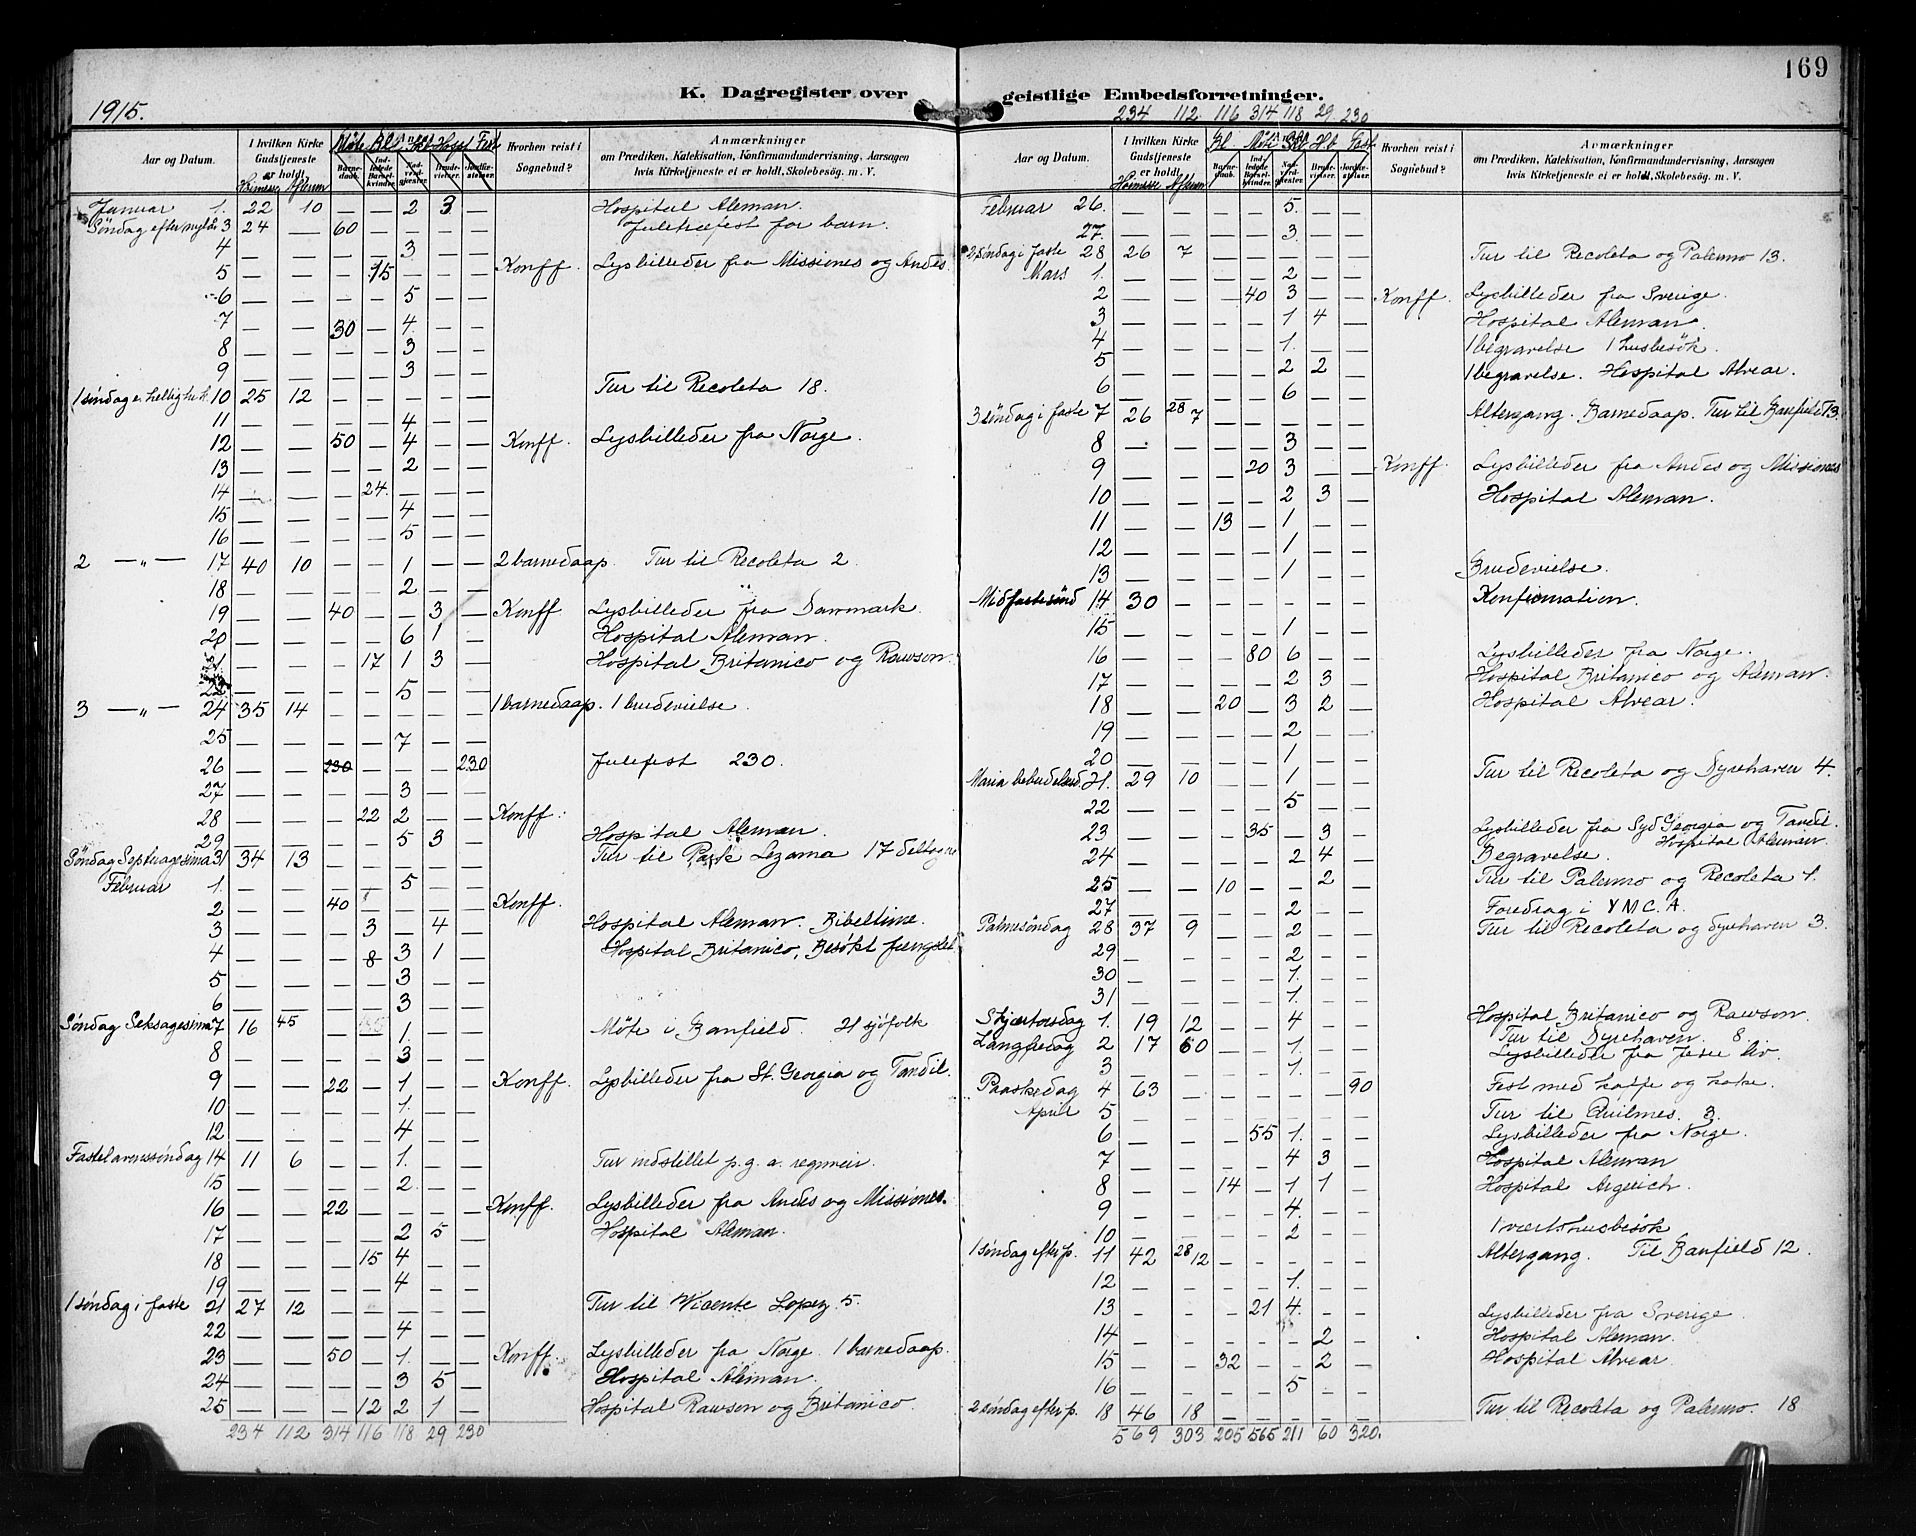 169
K. Dagregister over geistlige Embedsforretninger.
1915.
234 112 116 314 118 29 230
Aar og Datum.
I hvilken Kirke Gudstjeneste er holdt.
Hvorhen reist i Sognebud?
Anmærkninger
om Prædiken, Katekisation, Konfirmandundervisning, Aarsagen
hvis Kirketjeneste ei er holdt, Skolebesøg. m. V.
Januar 1. 22 10 — — 2 3 — Hospital Aleman.
Søndag efter nytår 3 24 — 60 — — — — Juletræfest for barn.
4 — — — — 3 — —
5 — — — 15 — — — Konff. Lysbilleder fra Missiones og Andes
6 — — — — 5 — —
7 — — 30 — 4 — —
8 — — — — 3 — —
9 — — — — 3 — —
1 søndag e. helligtrek. 10 25 12 — — — — — Tur til Recoleta 18.
11 — — — — 4 — —
12 — — 50 — 4 — — Konff. Lysbilleder fra Norge.
13 — — — — 2 — —
14 — — — 24 — — —
15 — — — — 4 — —
16 — — — — 5 — —
2 — „ — 17 40 10 — — 1 — — 2 barnedaap. Tur til Recoleta 2.
18 — — — — 2 — —
19 — — 40 — — 3 — Konff Lysbilleder fra Danmark.
20 — — — — 6 1 — Hospital Aleman.
21 — — — 17 1 3 — Hospital Britanico og Rawson.
22 — — — — 5 — —
3 — „ — 24 35 14 — — — — — 1 barnedaap. 1 brudevielse.
25 — — — — 7 — —
26 — — 230 — — — 230 Julefest 230.
27 — — — — 3 — —
28 — — — 22 2 — — Konff.
29 — — — — 5 3 — Hospital Aleman.
Søndag Septuagesima 31 34 13 — — — — — Tur til Park Lezama 17 deltagne
Februar 1. — — — — 5 — —
2 — — 40 — — — — Konff.
3 — — — 3 — 4 — Hospital Aleman. Bibeltime.
4 — — — 8 3 1 — Hospital Britanico, Besökt fængslet
5 — — — — 3 — —
6 — — — — 3 — —
Søndag Seksagesima 7 16 45 — 1. — — Möte i Banfield. 21 sjöfolk
8 — — — — 3 — —
9 — — 22 — 1 — — Konff. Lysbilleder fra St. Georgia og Tandil.
10 — — — — 1. — —
12 — — — — 4 — —
Fastelavenssöndag 14 11 6 — — 1. — — Tur indstillet p. g. a. regnveir.
15 — — — — 2 — —
16 — — 22 — — — — Konff. Lysbilleder fra Andes og Missiones.
17 — — — — 2 5 — Hospital Aleman.
18 — — — 15 4 — —
19 — — — — 4 — —
1 søndag i faste 21 27 12 — — — — — Tur til Vicente Lopez 5.
22 — — — — 4 — —
23 — — 50 — 1. — — Konff. Lysbilleder fra Norge. 1 barnedaap.
24 — — — — 3 5 — Hospital Aleman.
25 — — — 12 2 1 — Hospital Rawson og Britanico.
234 112 314 116 118 29 230
Aar og Datum.
I hvilken Kirke Gudstjeneste er holdt.
Hvorhen reist i Sognebud?
Anmærkninger
om Prædiken, Katekisation, Konfirmandundervisning, Aarsagen
hvis Kirketjeneste ei er holdt, Skolebesøg. m. V.
Februar 26. — — — — 5. — —
27. — — — — 3. — —
2 søndag i faste 28 26 7 — — — — — Tur til Recoleta og Palermo 13.
Mars 1. — — — — 2 — —
2 — — — 40 3 — — Konff. Lysbilleder fra Sverige.
3 — — — — 1 4 — Hospital Aleman.
4 — — — — 1. — — 1 begravelse 1 husbesök.
5 — — — — 2 2 — 1 begravelse. Hospital Alvear.
6 — — — — 6 — —
3 søndag i faste 7 26 28 7 — — — — — Altergang. Barnedaap. Tur til Banfield 13.
8 — — — — 3 — —
9 — — — 20 3 — — Konff. Lysbilleder fra Andes og Missiones
10 — — — — 2 3 — Hospital Aleman.
11 — — 13 — 1 — —
12 — — — — 1 — —
13 — — — — 1 — — Brudevielse.
Midfastesönd 14 30 — — — — — — Konfirmation.
15 — — — — 1 — —
16 — — — 80 6 — — Lysbilleder fra Norge.
17 — — — — 2 3 — Hospital Britanico og Aleman.
18 — — 20 — 3 2 — Hospital Alvear.
19 — — — — 2 — —
20 — — — — 1 — —
Maria bebudelsesd 21. 29 10 — — 1 — — Tur til Recoleta og Dyrehaven 4.
22 — — — — 5 — —
23 — — — 35 — 3 — Lysbilleder fra Syd Georgia og Tandil. Hospital Aleman.
24 — — — — 2 4 — Begravelse.
25 — — 10 — — 2 — Tur til Palermo og Recoleta 1.
27 — — — — 2 — — Foredrag i Y M C. A.
Palmesöndag 28 37 9 — — 2 — — Tur til Recoleta og Dyrehaven 3.
29 — — — — 2 — —
30 — — — — 1. — —
31 — — — — 1. — —
Skjærtorsdag 1. 19 12 — — 4 — — Hospital Britanico og Rawson.
Langfredag 2 17 60 — — 1 — — Tur til Dyrehaven. 8.
3 — — — — 1. — — Lysbilleder fra Jesu liv.
Paaskedag 4 63 — — — — — 90 Fest med kaffe og kake.
April 5 — — — — — — — Tur til Quilmes. 3.
6 — — — 55 1. — — Lysbilleder fra Norge.
7 — — — — 4 3 — Hospital Aleman
8 — — 14 — 1 1 — Hospital Argerich.
9 — — — — 4. — —
10 — — — — 2 — — 1 værtshusbesök
1 søndag efter p. 11 42 28 12 — — — — — Altergang. Til Banfield 12.
12 — — — — 1. — —
13 — — — 21 4 — — Lysbilleder fra Sverige
14 — — — — — 2 — Hospital Aleman.
15 — — 32 — — 2 — Hospital Alvear
16 — — — — 5 — —
2 søndag efter p. 18 46 18 — — — — — Tur til Recoleta og Palermo. 18
569 303 205 565 211 60 320.